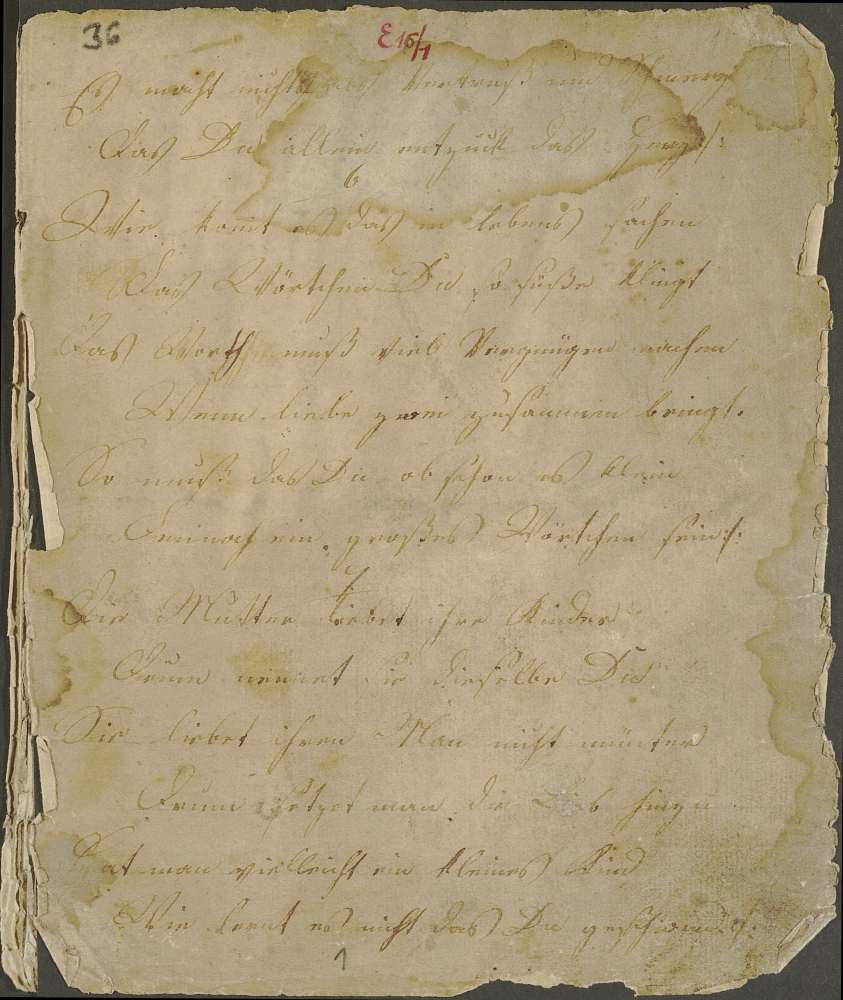 36
E 16/1
Es macht nichts Verdruß und Schmerz
Das Du allein entzuckt das Herz :/:
6
Wie komt es das in lebens sachen
Das Wörtchen Du so süße klingt
Das Worth muß viel Vergnügen machen
Wenn liebe zwei zusammen bringt.
So muß das Du ob schon es klein
Dennoch ein großes Wörtchen sein :/:
7
Die Mutter liebet ihre Kinder
Drum nennet sie dieselbe Du
Sie liebet ihren Man nicht minder
Drum setzet man die Lieb hinzu
Hat man vielleicht ein kleines Kind
Wie lernt es nicht das Du geschwind :/:
1